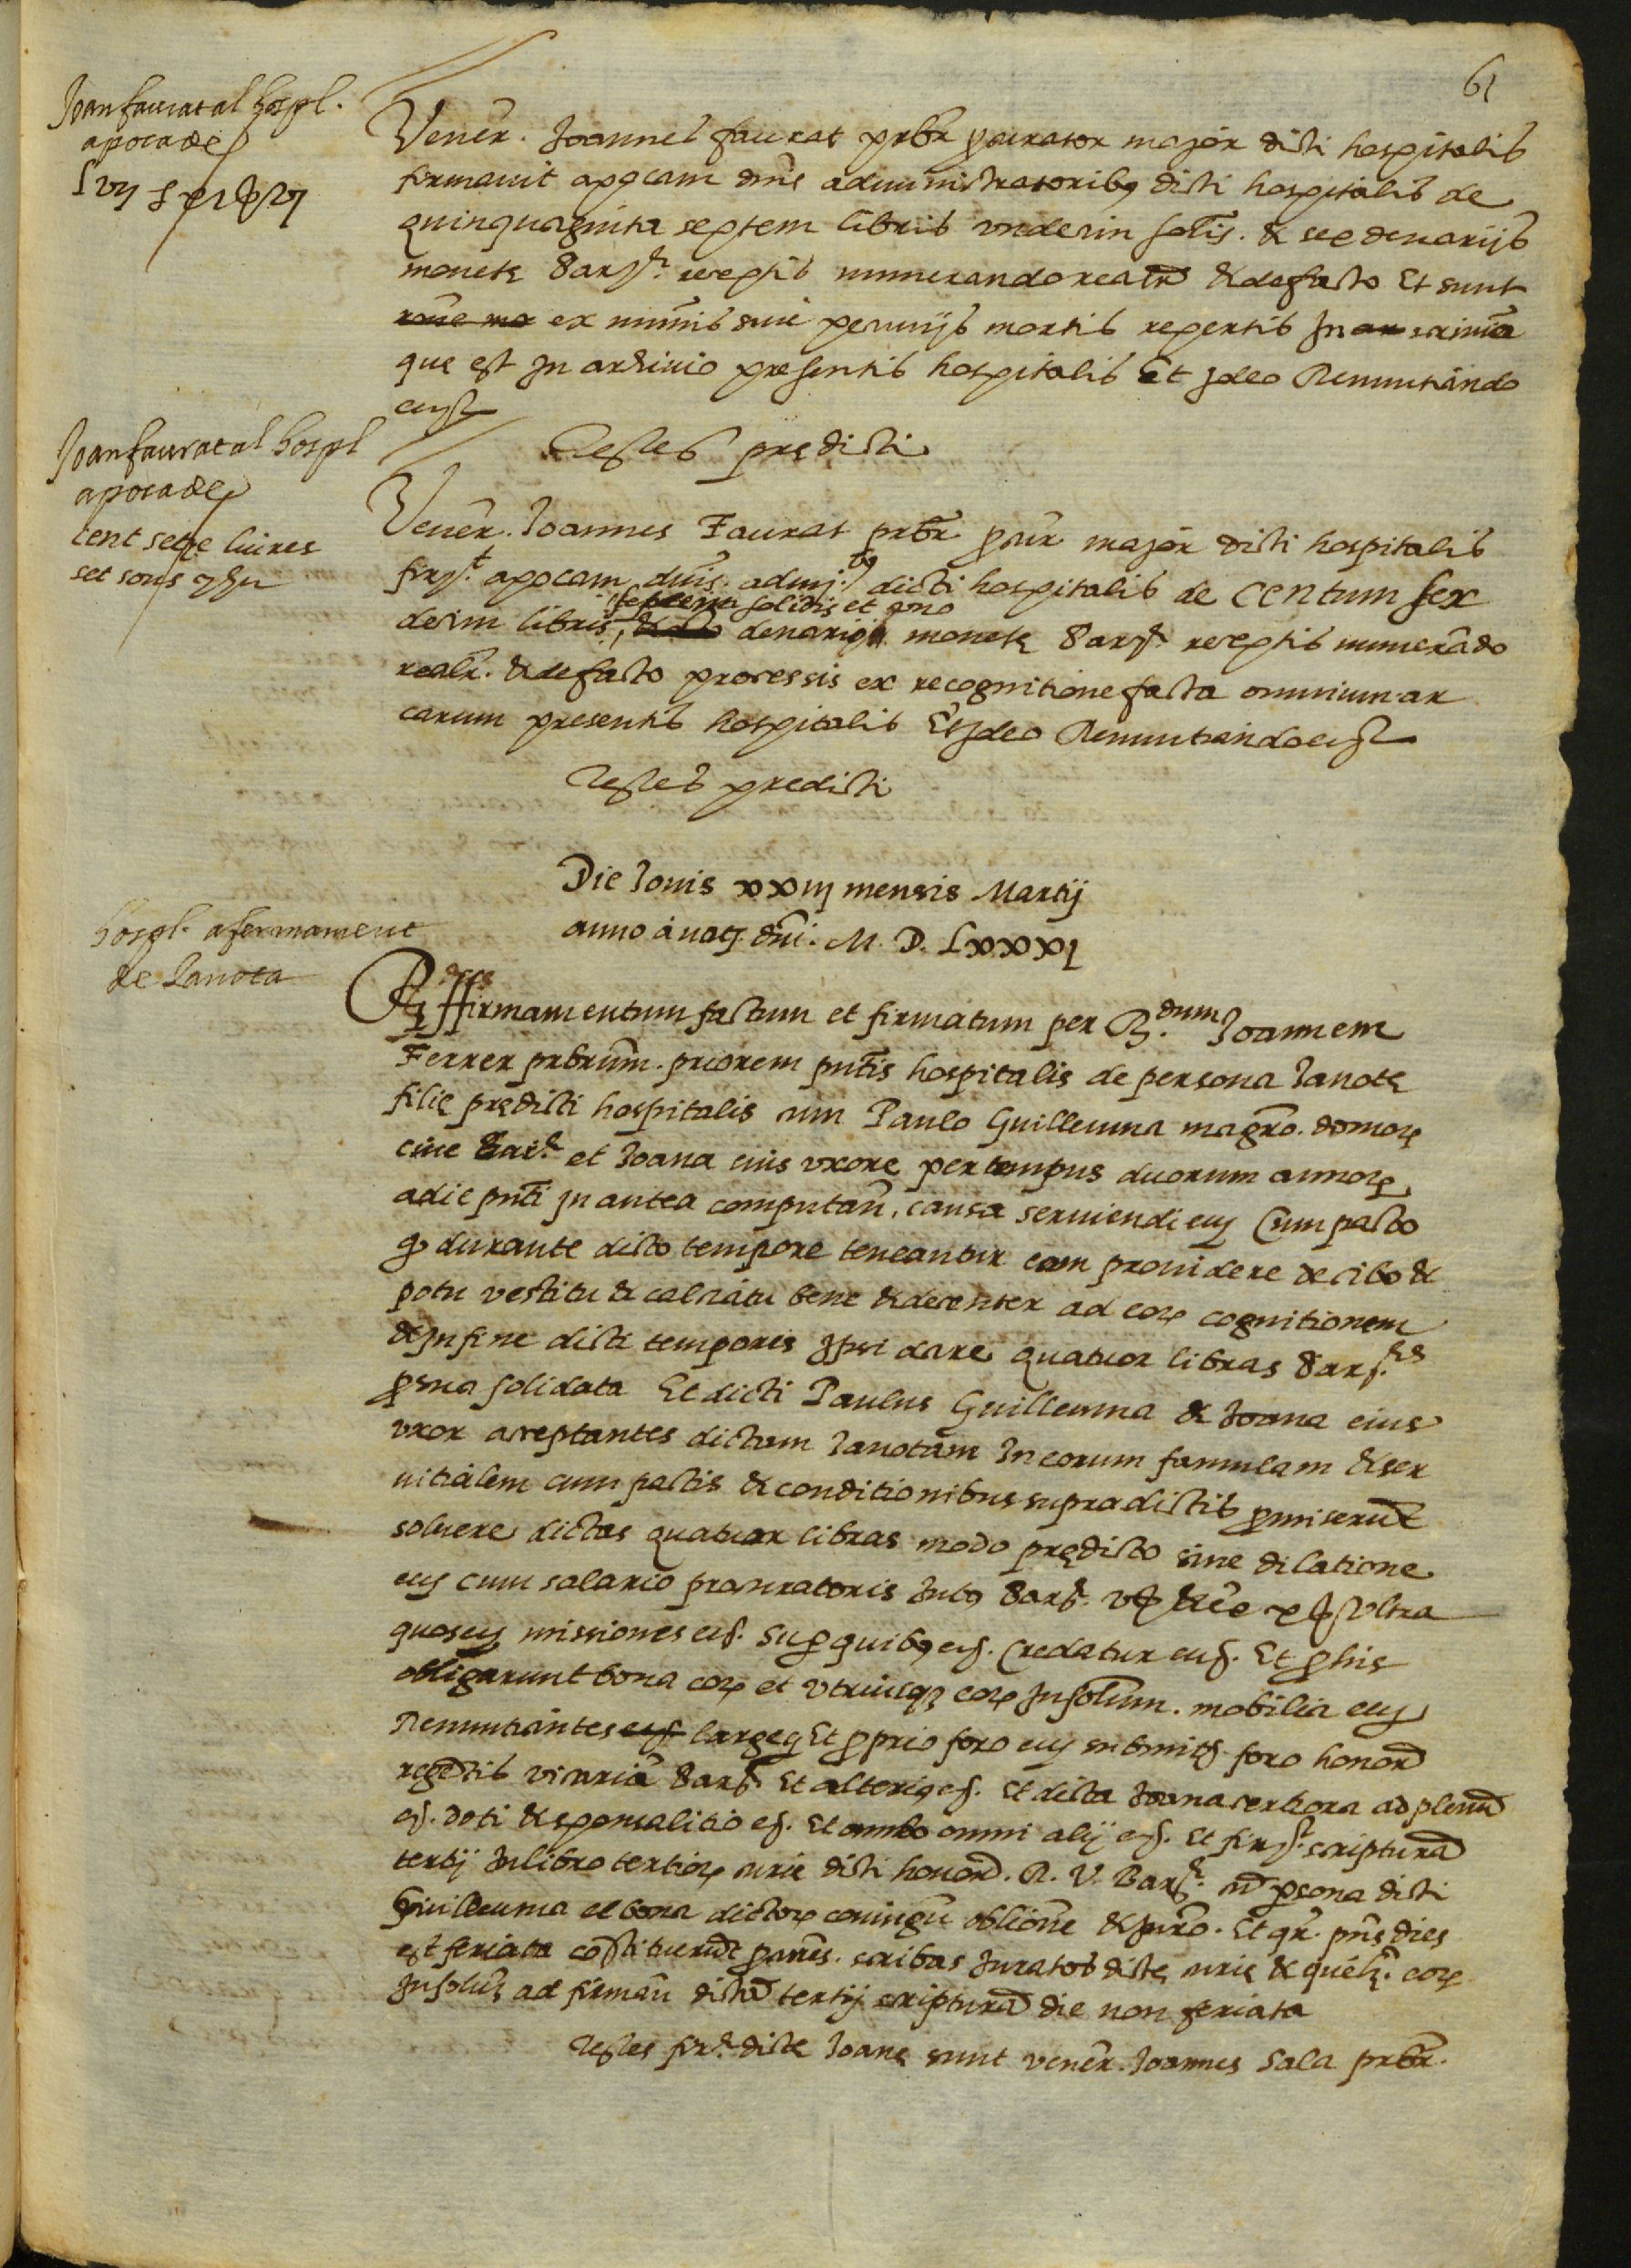 61
Joan faurat al hospl.
apoca de
Lvij ℒ xi ß vj
Venēr. Joannes faurat prbr̄ procurator major dicti hospitalis
firmavit apocam dnīs administratoribus dicti hospitalis de
quinquaginta septem libris undecim solīs. & sex denarijs
monetę Barȷ͂. receptis numerando realr̄ & de facto Et sunt
ex sive pecunijs mortis repertis In scrinio
que est In archivio presentis hospitalis Et Ideo Renuntiando
etc
Testes prędicti
Joan faurat al hospl
apoca de
cent setze liures
set sous y hu
Venēr. Joannes Faurat prbr̄ pcur̄ major dicti hospitalis
firȷ.t apocam dnīs. admj.bus dicti hospitalis de centum sex
septem solidis et uno
decim libris, denarijs monetę Barȷ͂. receptis numerādo
realr̄. & de facto processis ex recognitione facta omnium ar
carum presentis hospitalis Et Ideo Renuntiando etc
Testes predicti
Die Jovis xxiij mensis Martij
anno ā natȷ. dnī. M. D. Lxxxj
hospl. afermament
de Janota
Affirmamentum factum et firmatum per R.dum Joannem
Ferrer prbrūm. priorem pntīs hospitalis de persona Janotę
filię prędicti hospitalis cum Paulo Guillemna magrō. domor
cive Barȷ͂. et Joana eius uxore per tempus duorum annor
a die pntī In antea computān. causa serviendi etc Cum pacto
q durante dicto tempore teneantur eam providere de cibo &
potu vestitu & calciatu bene & decenter ad eor cognitionem
& In fine dicti temporis Ipsi dare quatuor libras Barȷ.es
p sua solidata Et dicti Paulus Guillemna & Joana eius
uxor acceptantes dictam Janotam In eorum famulam & ser
vitialem cum pactis & conditionibus supradictis pmiserūt
solvere dictas quatuor libras modo prędicto sine dilatione
etc cum salario procuratoris Intus Barȷ͂. v ß & ex x ß Ultra
quos etc missiones etc. Sup quibus etc. Credatur etc. Et p his
obligarunt bona eor et utriusq eor Insolūm. mobilia etc
Renuntiantes etc large Et pprio foro etc submitȷ foro honor
regētis vicariā Barȷ͂. Et alterius etc. Et dicta Joana certiora ad plenū
eȷ. doti & sponsalitio eȷ. Et ambo omni alij etc. Et firȷ. scripturā
tertij In libro tertior curie dicti honor. R. V. Barȷ͂. sȷ psona dicti
Guillemna et bona dictor coniugū obliōne & jurō. Et qr̄. pn̄s dies
est feriata cōstituerūt pcures. scribas Juratos dictę curię & quēlꝫ. eor
Insolūꝫ ad firmān dictā tertij scripturā die non feriata
Testes firȷ. dictę Joanę sunt venēr. Joannes Sala prbr̄.